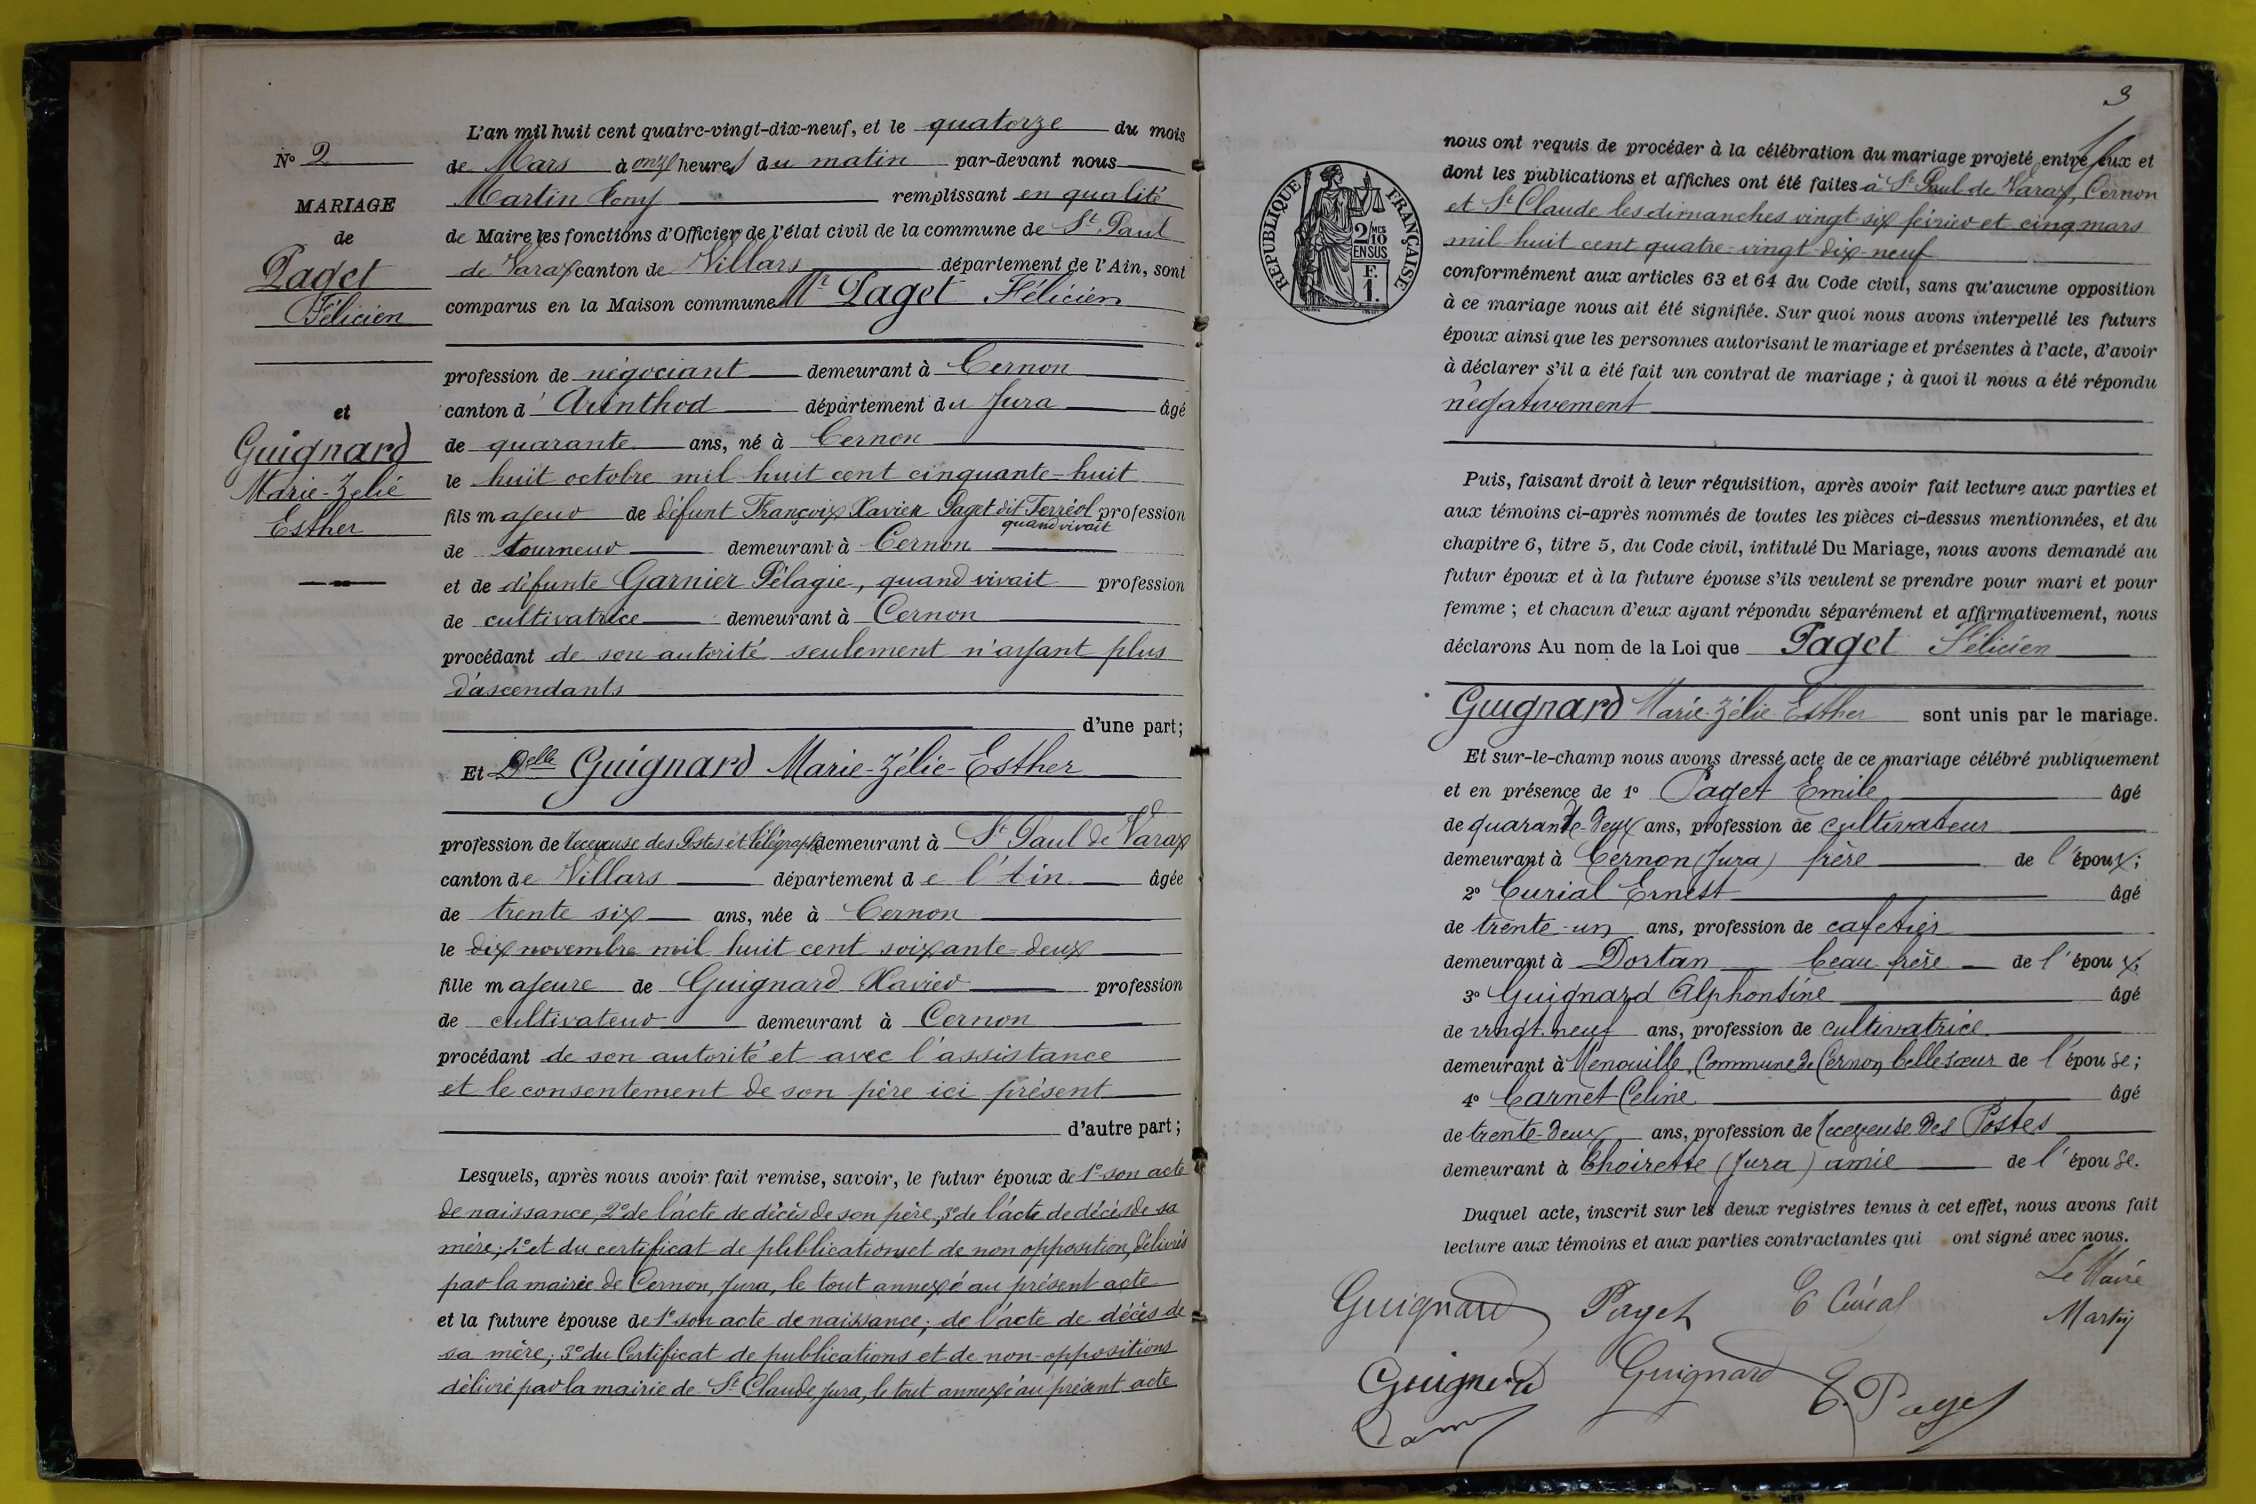 N° 2
MARIAGE
de
Paget
Félicien
et
Guignard
Marie-Zelie
Esther
L'an mil huit cent quatre-vingt-dix-neuf, et le quatorze du mois
de Mars à onze heures du matin par-devant nous
Martin Tony remplissant en qualité
de Maire les fonctions d'Officier de l'état civil de la commune de St Paul
de Varax canton de Villars département de l'Ain, sont
comparus en la Maison commune Mr Paget Félicien
profession de négociant demeurant à Cernon
canton d'Arinthod département du Jura âgé
de quarante ans, né à Cernon
le huit octobre mil huit cent cinquante-huit
fils majeur de défunt François Xavier Paget dit Ferréol profession
quand vivait
de tourneur demeurant à Cernon
et de défunte Garnier Pélagie, quand vivait profession
de cultivatrice demeurant à Cernon
procédant de son autorité seulement n'ayant plus
d'ascendants
d'une part;
Et Delle Guignard Marie-Zélie-Esther
profession de receveuse des Postes et Télégraphe demeurant à St Paul de Varax
canton de Villars département de l'Ain âgée
de trente six ans, née à Cernon
le dix novembre mil huit cent soixante-deux
fille majeure de Guignard Xavier profession
de cultivateur demeurant à Cernon
procédant de son autorité et avec l'assistance
et le consentement de son père ici présent
d'autre part;
Lesquels, après nous avoir fait remise, savoir, le futur époux de 1° son acte
de naissance, 2° de l'acte de décès de son père, 3° de l'acte de décès de sa
mère; 4° et du certificat de publications et de non opposition, délivrés
par la mairie de Cernon, Jura, le tout annexé au présent acte
et la future épouse de 1° son acte de naissance; de l'acte de décès de
sa mère; 3° du Certificat de publications et de non-oppositions
délivré par la mairie de St Claude, Jura, le tout annexé au présent acte
3
REPUBLIQUE FRANÇAISE
2 MES
10
EN SUS
F.
1.
nous ont requis de procéder à la célébration du mariage projeté entre eux et
dont les publications et affiches ont été faites à St Paul de Varax, Cernon
et St Claude les dimanches vingt six février et cinq mars
mil huit cent quatre-vingt-dix-neuf
conformément aux articles 63 et 64 du Code civil, sans qu'aucune opposition
à ce mariage nous ait été signifiée. Sur quoi nous avons interpellé les futurs
époux ainsi que les personnes autorisant le mariage et présentes à l'acte, d'avoir
à déclarer s'il a été fait un contrat de mariage; à quoi il nous a été répondu
négativement
Puis, faisant droit à leur réquisition, après avoir fait lecture aux parties et
aux témoins ci-après nommés de toutes les pièces ci-dessus mentionnées, et du
chapitre 6, titre 5, du Code civil, intitulé Du Mariage, nous avons demandé au
futur époux et à la future épouse s'ils veulent se prendre pour mari et pour
femme; et chacun d'eux ayant répondu séparément et affirmativement, nous
déclarons Au nom de la Loi que Paget Félicien
Guignard Marie-Zélie-Esther sont unis par le mariage.
Et sur-le-champ nous avons dressé acte de ce mariage célébré publiquement
et en présence de 1° Paget Emile âgé
de quarante-deux ans, profession de cultivateur
demeurant à Cernon (Jura) frère de l'époux;
2° Curial Ernest âgé
de trente-un ans, profession de cafetier
demeurant à Dortan beau frère de l'époux;
3° Guignard Alphonsine âgé
de vingt-neuf ans, profession de cultivatrice
demeurant à Menouille, Commune de Cernon belle sœur de l'épouse;
4° Carnet Celine âgé
de trente-deux ans, profession de receveuse des Postes
demeurant à Thoirette (Jura) amie de l'épouse.
Duquel acte, inscrit sur les deux registres tenus à cet effet, nous avons fait
lecture aux témoins et aux parties contractantes qui ont signé avec nous.
Guignard Paget E Curial Le Maire
Martin
Guignard Guignard E. Paget